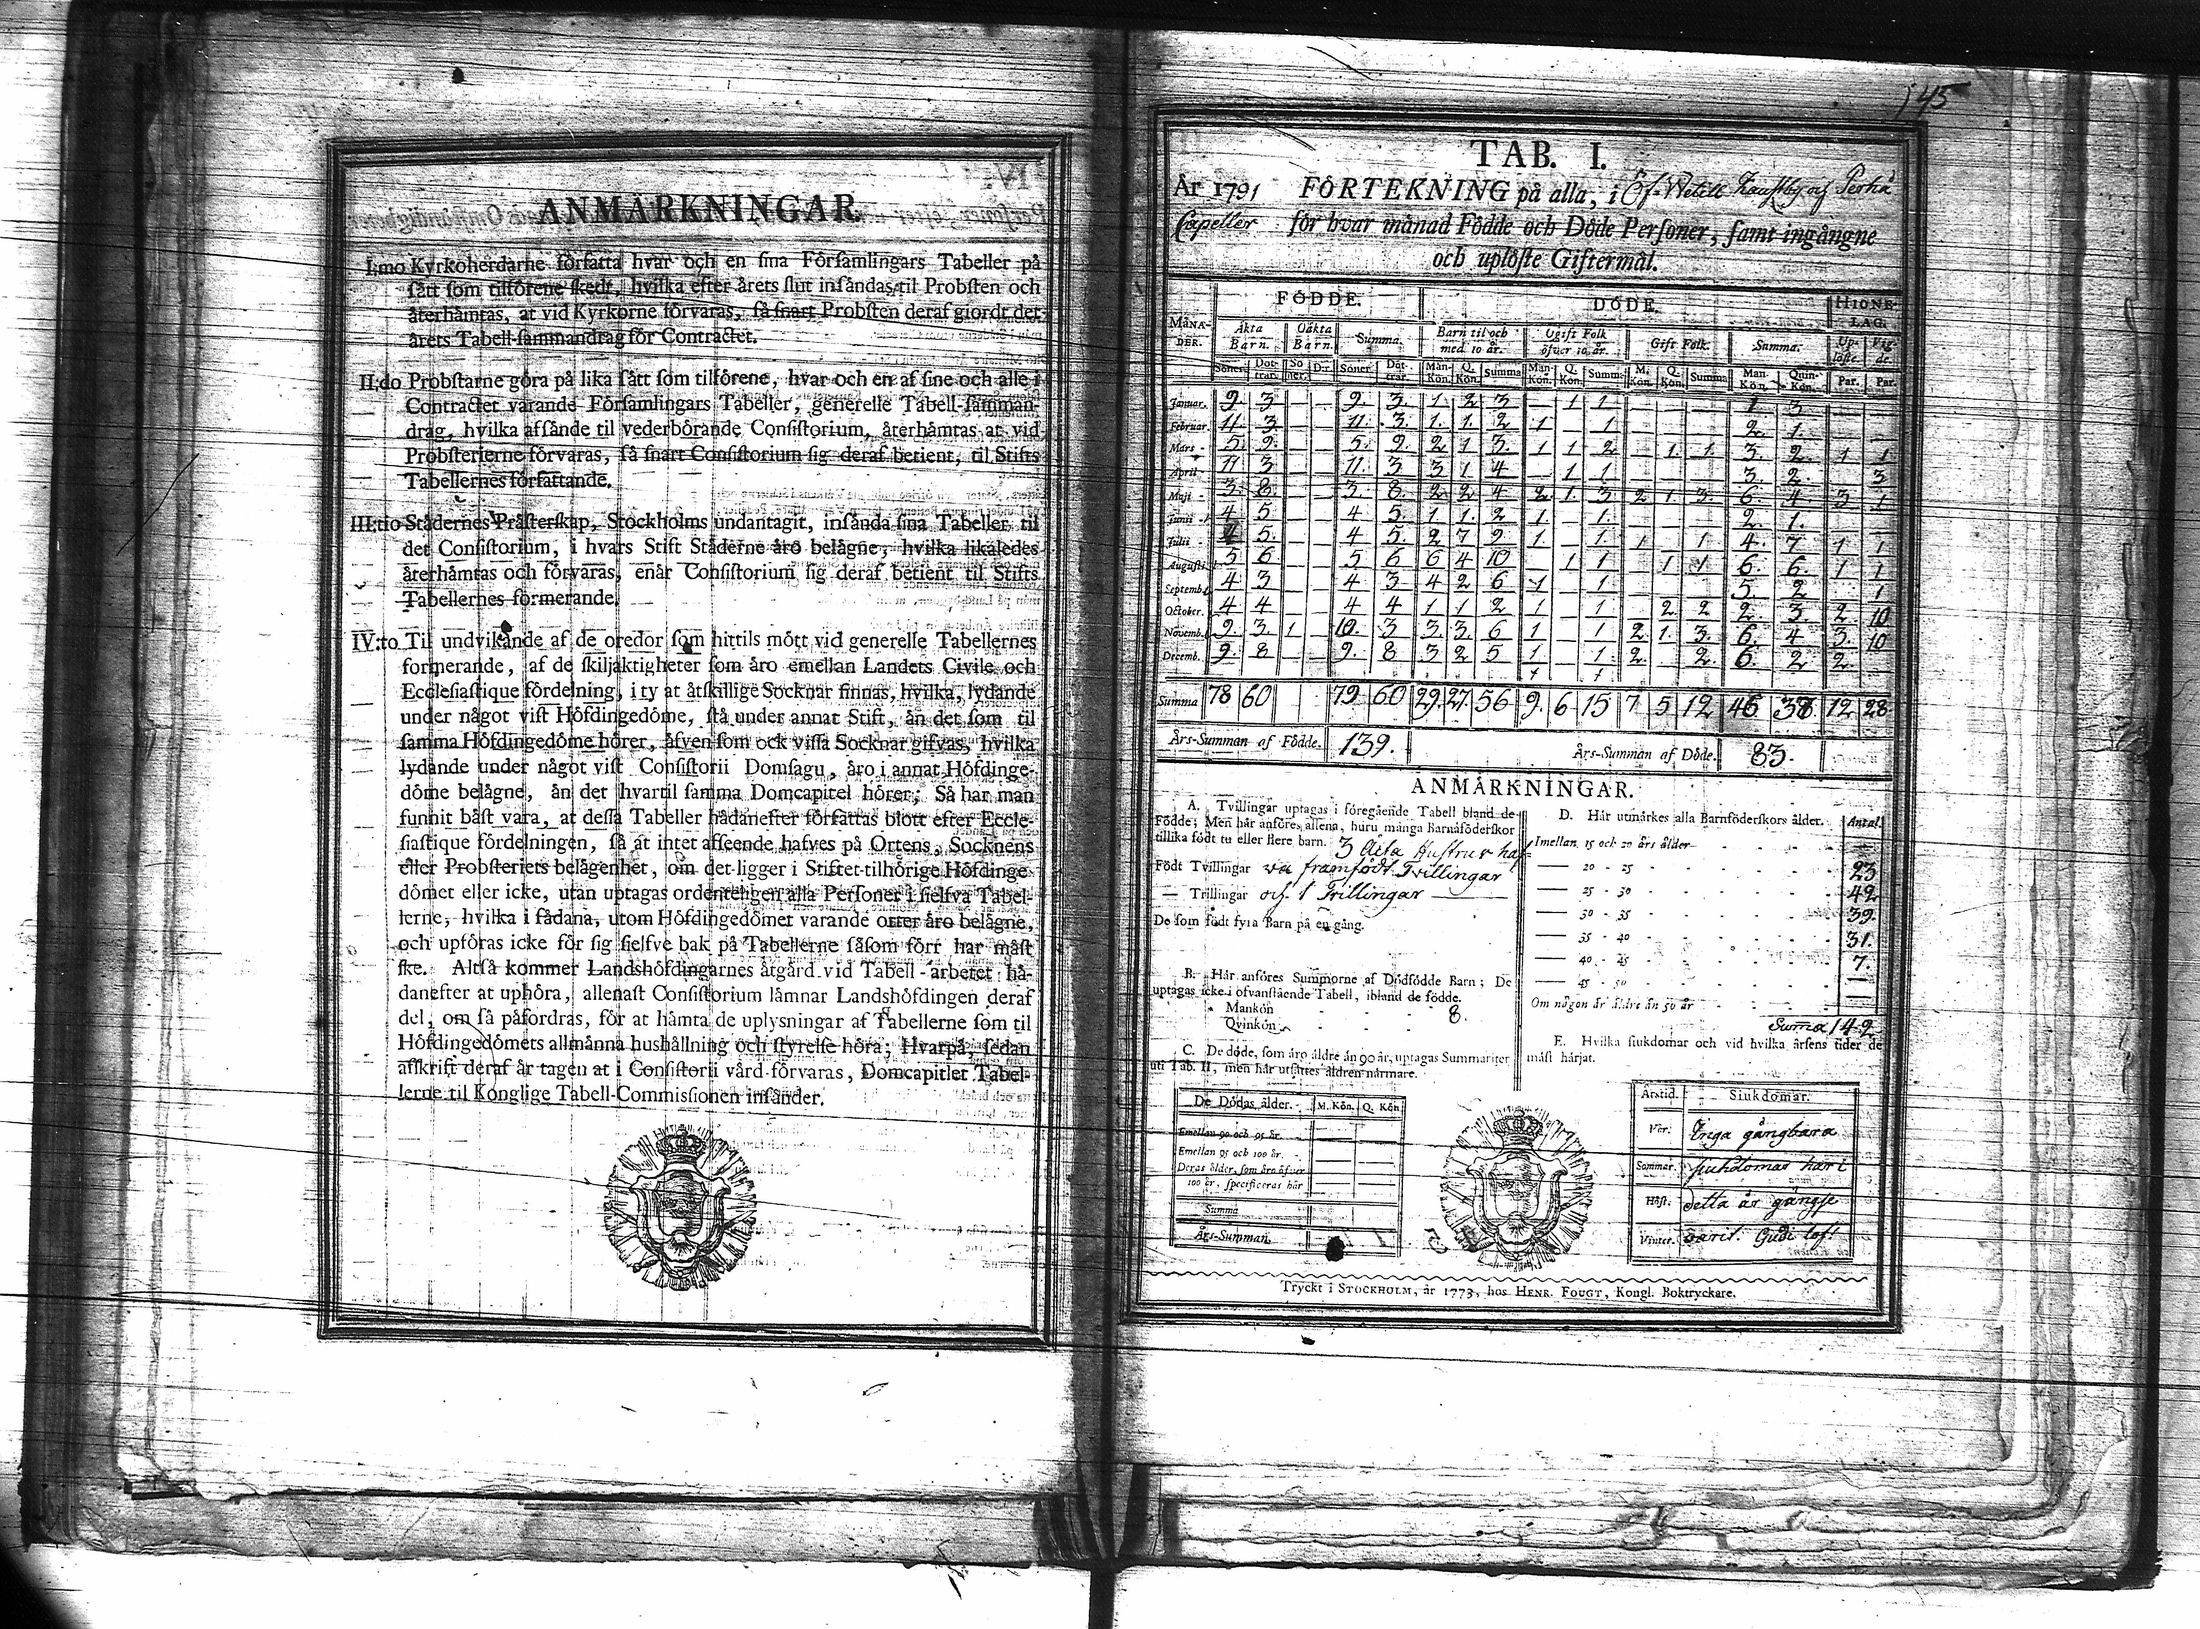 ANMÄRKNINGAR.
I:mo Kyrkoherdarne författa hvar och en sina Församlingars Tabeller på
sätt som tilförene skedt, hvilka efter årets slut insändas til Probsten och
återhämtas, at vid Kyrkorne förvaras, så snart Probsten deraf giordt det
årets Tabell-sammandrag för Contractet.
II:do Probstarne göra på lika sätt som tilförene, hvar och en af sine och alle i
Contractet varande Församlingars Tabeller, generelle Tabell-samman-
drag, hvilka afsände til vederbörande Consistorium, återhämtas at vid
Probsterierne förvaras, så snart Consistorium sig deraf betient, til Stifts
Tabellernes författande.
III:tio Städernes Prästerskap, Stockholms undantagit, insända sina Tabeller til
det Consistorium, i hvars Stift Städerne äro belägne, hvilka likaledes
återhämtas och förvaras, enär Consistorium sig deraf betient til Stifts
Tabellernes formerande.
IV:to Til undvikande af de oredor som hittils mött vid generelle Tabellernes
formerande, af de skiljaktigheter som äro emellan Landets Civile och
Ecclesiastique fördelning, i ty at åtskillige Socknar finnas, hvilka, lydande
under något vist Höfdingedöme, stå under annat Stift, än det som til
samma Höfdingedöme hörer, äfven som ock vissa Socknar gifvas, hvilka
lydande under något vist Consistorii Domsagu, äro i annat Höfdinge-
döme belägne, än det hvartil samma Domcapitel hörer; Så har man
funnit bäst vara, at dessa Tabeller hädanefter författas blott efter Eccle-
siastique fördelningen, så at intet afseende hafves på Ortens, Socknens
eller Probsteriets belägenhet, om det ligger i Stiftet tilhörige Höfdinge-
dömet eller icke, utan uptagas ordenteligen alla Personer i sielfva Tabel-
lerne, hvilka i sådana, utom Höfdingedömet varande orter äro belägne,
och upföras icke för sig sielfve bak på Tabellerne såsom förr har måst
ske. Altså kommer Landshöfdingarnes åtgärd vid Tabell-arbetet hä-
danefter at uphöra, allenast Consistorium lämnar Landshöfdingen deraf
del, om så påfordras, för at hämta de uplysningar af Tabellerne som til
Höfdingedömets allmänna hushållning och styrelse höra; Hvarpå, sedan
afskrift deraf är tagen at i Consistorii vård förvaras, Domcapitlet Tabel-
lerne til Konglige Tabell-Commissionen insänder.
145
TAB. I.
År 1791 FÖRTEKNING på alla, i Öf. Vetill Kaustby och Perho
Capeller för hvar månad Födde och Döde Personer, samt ingångne
och uplöste Giftermål.
FÖDDE. DÖDE. HIONE-LAG.
MÅNADER. Äkta Barn. Oäkta Barn. Summa. Barn til och med 10 år. Ogift Folk öfver 10 år. Gift Folk. Summa. Uplöste Vigde
Söner. Dottrar. Söner. D:r Söner. Dottrar. Mån-Kön. Q. Kön. Summa Man-Kön. Q. Kön. Summ. M. Kön. Q. Kön. Summa Man-Kön. Quin-Kön. Par. Par.
Januar. 9 3 — — 9. 3. 1. 2 3 — 1 1 — — — 1 3 — —
Februar. 11. 3 — — 11. 3. 1. 1. 2 1 — 1 — — — 2. 1. — —
Mars 5. 9. — — 5. 9. 2 1 3. 1 1 2 — 1. 1. 3. 2. 1 1
April 11 3 — — 11. 3 3 1 4 — 1 1 — — — 3. 2. — 3
Maji 3. 8. — — 3. 8. 2 2 4 2 1. 3 2 1 3. 6. 4. 3 1
Junii 4 5 — — 4 5. 1 1. 2 1. — 1. — — — 2. 1. — —
Julii 4 5. — — 4 5. 2 7 9 1 — 1. 1 — 1 4. 7 1 1
Augusti 5 6. — — 5 6 6 4 10 — 1 1 — 1 1 6. 6. 1 1
Septemb. 4 3 — — 4 3 4 2 6 1 — 1 — — — 5. 2 — 1
October. 4 4 — — 4 4 1 1 2 1 — 1 — 2 2 2. 3. 2. 10
Novemb. 9. 3. 1 — 10. 3 3 3. 6 1 — 1 2 1. 3. 6. 4 3. 10
Decemb. 9. 8 — — 9. 8 3 2 5 1. — 1. 2 — 2. 6. 2 2 —
Summa 78 60 79 60 29. 27. 56 9. 6 15 7 5 12 46 38 12 28
Års-Summan af Födde. 139. Års-Summan af Döde. 83.
ANMÄRKNINGAR.
A. Tvillingar uptagas i föregående Tabell bland de
Födde; Men här anföres allena, huru många Barnaföderskor
tillika födt tu eller flere barn. 3 Äkta Hustrur haf-
Födt Tvillingar va framfödt Tvillingar
— Trillingar och 1 Trillingar
De som födt fyra Barn på en gång.
B. Här anföres Summorne af Dödfödde Barn; De
uptagas icke i ofvanstående Tabell, ibland de födde.
Mankön 8.
Qvinkön
C. De döde, som äro äldre än 90 år, uptagas Summariter
uti Tab. II, men här utsättes åldren närmare.
De Dödas ålder. M. Kön. Q. Kön
Emellan 90 och 95 år.
Emellan 95 och 100 år.
Deras ålder, som äro öfver
100 år, specificeras här
Summa
Års-Summan.
D. Här utmärkes alla Barnföderskors ålder. Antal.
Imellan 15 och 20 års ålder —
— 20 - 25 23
— 25 - 30 42
— 30 - 35 39.
— 35 - 40 31.
— 40 - 45 7.
— 45 - 50 —
Om någon är äldre än 50 år —
Suma 142
E. Hvilka siukdomar och vid hvilka årsens tider de
mäst härjat.
Årstid. Siukdomar.
Vår. Inga gångbara
Sommar. siukdomar har i
Höst. detta år gängse
Vinter. varit. Gudi lof!
Tryckt i STOCKHOLM, år 1773, hos HENR. FOUGT, Kongl. Boktryckare.